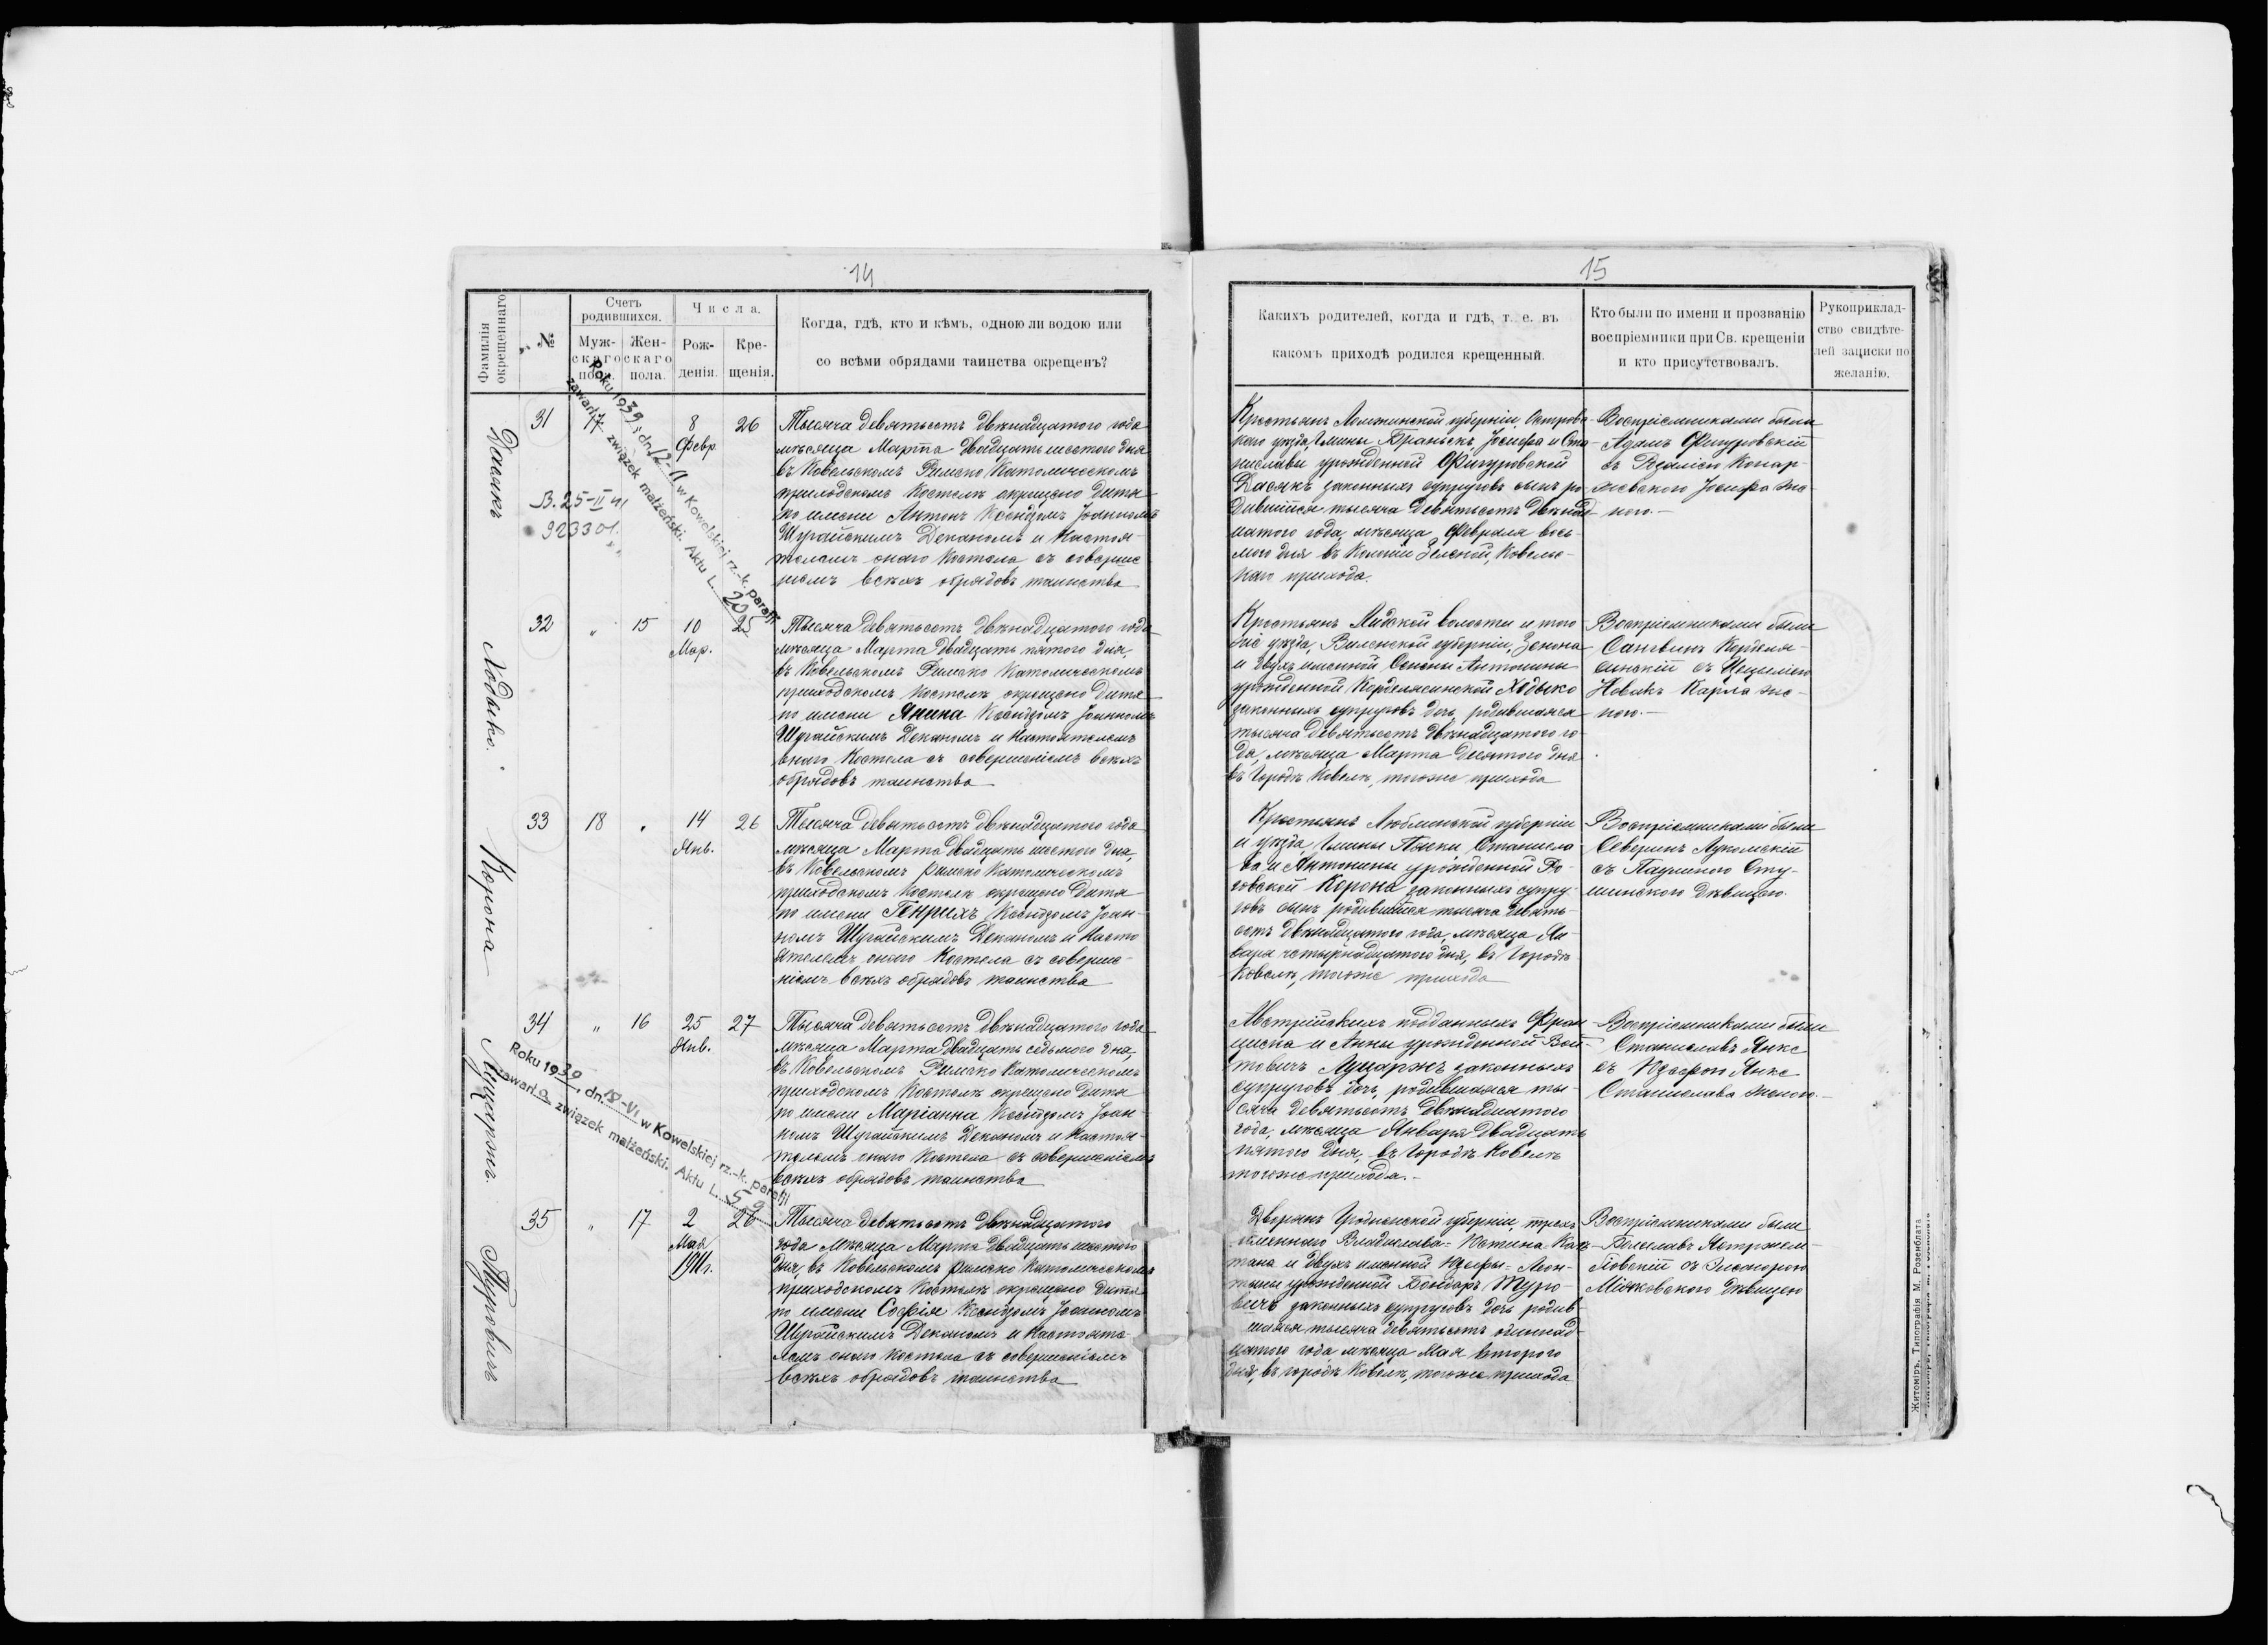 14
Фамилія окрещеннаго
№
Счетъ родившихся.
Муж-
скаго
пола.
Жен-
скаго
пола.
Числа.
Рож-
денія.
Кре-
щенія.
Когда, гдѣ, кто и кѣмъ, одною ли водою или
со всѣми обрядами таинства окрещенъ?
Дасякъ
31
17
8
Февр.
26
B. 25-II 41
923301.
Roku 1939, dn. 12-II w Kowelskiej rz.-k. parafji
zawarł związek małżeński. Aktu L. 20
Тысяча девятьсотъ двѣнадцатого года
мѣсяца Марта двадцать шестого дня
въ Ковельскомъ Римско Католическомъ
приходскомъ Костелѣ окрещено дитя
по имени Антонъ Ксендзомъ Іоанномъ
Шурайскимъ Деканомъ и Настоя-
телемъ онаго Костела съ соверше-
ніемъ всѣхъ обрядовъ таинства
Ходыко.
32
"
15
10
Мар.
25
Тысяча девятьсотъ двѣнадцатого года
мѣсяца Марта двадцать пятого дня,
въ Ковельскомъ Римско Католическомъ
приходскомъ Костелѣ окрещено дитя
по имени Янина Ксендзомъ Іоанномъ
Шурайскимъ Деканомъ и Настоятелемъ
онаго Костела съ совершеніемъ всѣхъ
обрядовъ таинства
Корона
33
18
"
14
Янв.
26
Тысяча девятьсотъ двѣнадцатого года
мѣсяца Марта двадцать шестого дня,
въ Ковельскомъ Римско Католическомъ
приходскомъ Костелѣ окрещено дитя
по имени Генрихъ Ксендзомъ Іоан-
номъ Шурайскимъ Деканомъ и Насто
ятелемъ онаго Костела съ соверше-
ніемъ всѣхъ обрядовъ таинства
Луцаржъ.
34
"
16
25
Янв.
27
Roku 1939, dn. 18-VI w Kowelskiej rz.-k. parafji
zawarła związek małżeński. Aktu L. 59
Тысяча девятьсотъ двѣнадцатого года
мѣсяца Марта двадцать седьмого дня,
въ Ковельскомъ Римско Католическомъ
приходскомъ Костелѣ окрещено дитя
по имени Маріанна Ксендзомъ Іоан-
номъ Шурайскимъ Деканомъ и Настоя-
телемъ онаго Костела съ совершеніемъ
всѣхъ обрядовъ таинства
Туровичъ
35
"
17
2
Мая
1911 г.
26
Тысяча девятьсотъ двѣнадцатого
года мѣсяца Марта двадцать шестого
дня, въ Ковельскомъ Римско Католическомъ
приходскомъ Костелѣ окрещено дитя
по имени Софія Ксендзомъ Іоанномъ
Шурайскимъ Деканомъ и Настояте-
лемъ онаго Костела съ совершеніемъ
всѣхъ обрядовъ таинства
15
Какихъ родителей, когда и гдѣ, т. е. въ
какомъ приходѣ родился крещенный.
Кто были по имени и прозванію
воспріемники при Св. крещеніи
и кто присутствовалъ.
Рукоприклад-
ство свидѣте-
лей записки по
желанію.
Крестьянъ Ломжинской губерніи, Острова-
каго уѣзда, Гмины Браньскъ, Іосифа и Ста-
ниславы урожденной Фигуровской
Дасякъ законныхъ супруговъ сынъ ро-
дившійся тысяча девятьсотъ двѣнад-
цатого года, мѣсяца Февраля вось-
мого дня въ Колоніи Зеленой, Ковельс-
каго прихода.
Воспріемниками были
Адамъ Фигуровскій
съ Розаліею Конар-
жевскаго Іосифа же-
ною.
Крестьянъ Лидской волости и того
же уѣзда, Виленской губерніи, Зенона
и двухъ именной Антонины
урожденной Корделясинской Ходыко
законныхъ супруговъ дочь, родившаяся
тысяча девятьсотъ двѣнадцатого го-
да, мѣсяца Марта десятого дня
въ Городѣ Ковелѣ, тогоже прихода
Воспріемниками были
Корделя-
синскій съ Цециліею
Новакъ Карла же-
ною.
Крестьянъ Люблинской губерніи
и уѣзда, Гмины Пяски, Станисла-
ва и Антонины урожденной Ро-
говской Корона законныхъ супру-
говъ сынъ родившійся тысяча девять-
сотъ двѣнадцатого года, мѣсяца Ян-
варя четырнадцатого дня, въ Городѣ
Ковелѣ, тогоже прихода
Воспріемниками были
Северинъ Лукомскій
съ Паулиною Сту-
шинскою дѣвицею.
Австрійскихъ подданныхъ Фран
циска и Анны урожденной Вой-
товичъ Луцаржъ законныхъ
супруговъ дочь, родившаяся ты-
сяча девятьсотъ двѣнадцатого
года, мѣсяца Января двадцать
пятого дня, въ Городѣ Ковелѣ
тогоже прихода.
Воспріемниками были
Станиславъ Янкс
съ Юзефою Янкс
Станислава женою.
Дворянъ Гродненской губерніи, трехъ
именнаго Владислава-Юстина-Каэ-
тана и двухъ именной Юзефы-Леон-
тины урожденной Бондаръ Туро-
вичъ законныхъ супруговъ дочь родив-
шаяся тысяча девятьсотъ одиннад-
цатого года мѣсяца Мая второго
дня, въ городѣ Ковелѣ, тогоже прихода
Воспріемниками были
Болеславъ Ястржем-
бовскій съ Элеонорою
Мѣсяцковскою дѣвицею
Житоміръ, Типографія М. Розенблата